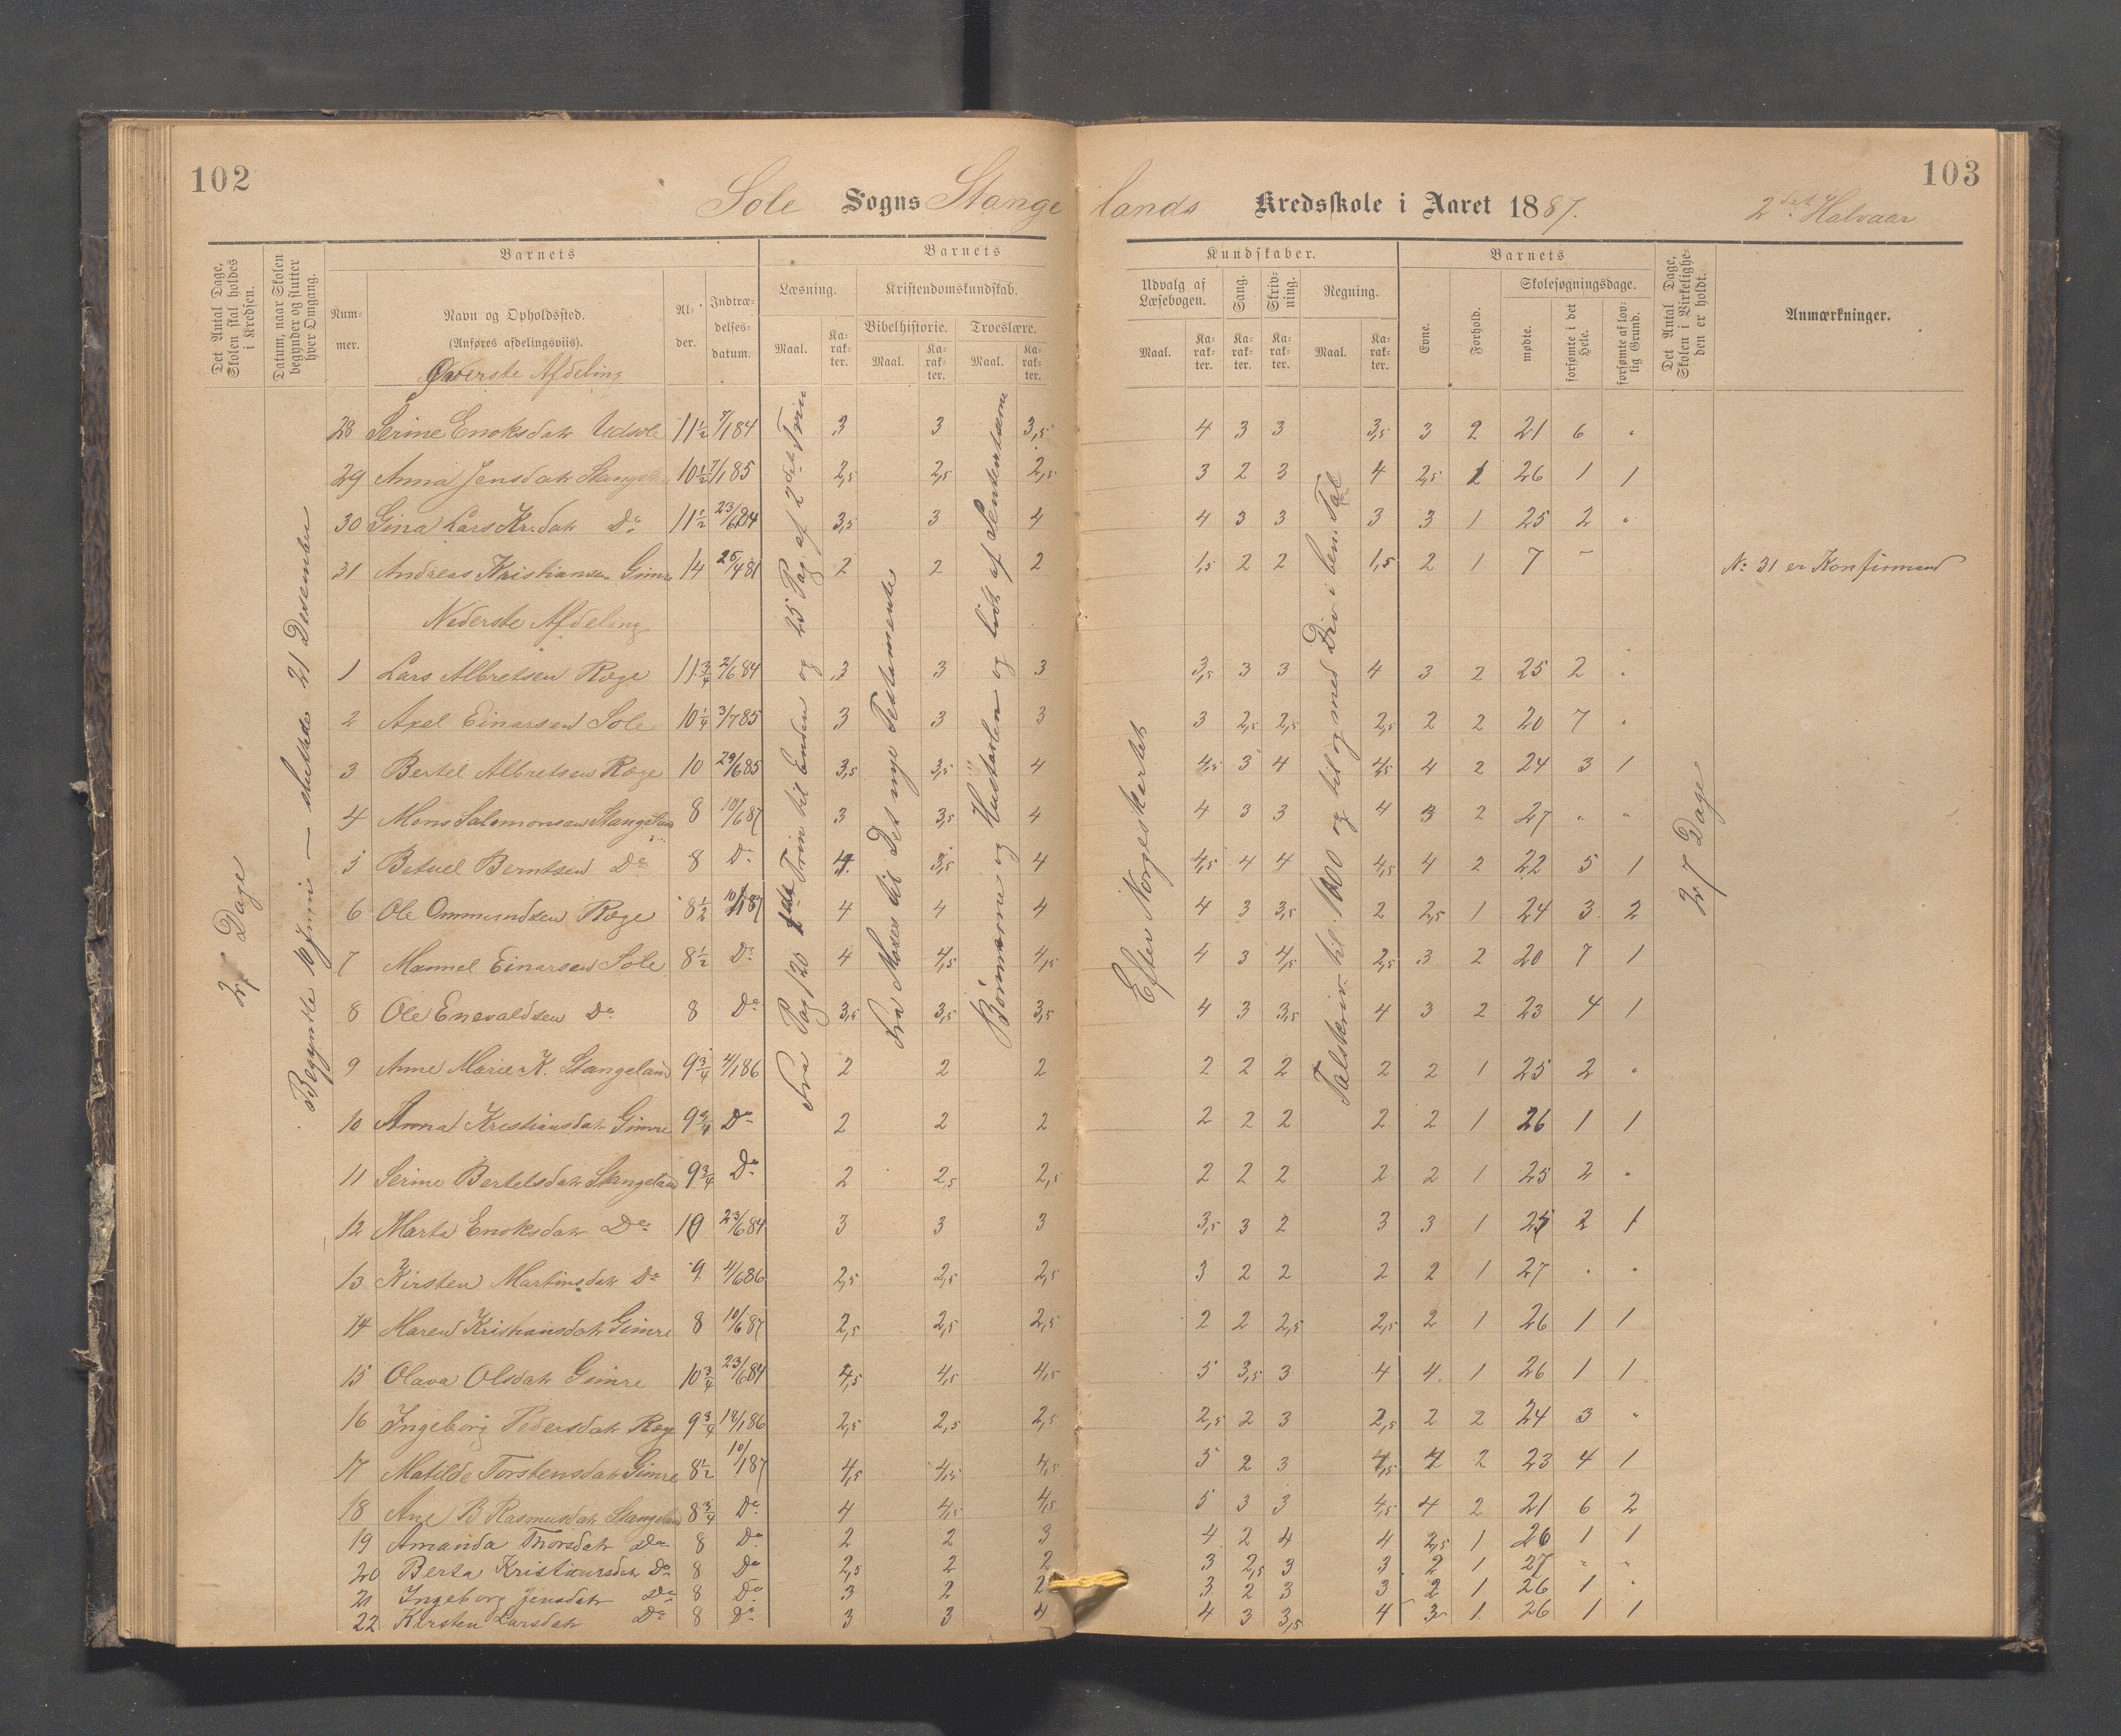 102
103
Sole Sogns Stangelands Kredsskole i Aaret 1887. 2det Halvaar
Det Antal Dage, Skolen skal holdes i Kredsen.
Datum, naar Skolen begynder og slutter hver Omgang.
Barnets
Nummer.
Navn og Opholdssted.
(Anføres afdelingsviis).
Alder.
Indtrædelsesdatum.
Barnets
Læsning.
Maal.
Karakter.
Kristendomskundskab.
Bibelhistorie.
Maal.
Karakter.
Troeslære.
Maal.
Karakter.
Kundskaber.
Udvalg af Læsebogen.
Maal.
Karakter.
Sang.
Karakter.
Skrivning.
Karakter.
Regning.
Maal.
Karakter.
Barnets
Evne.
Forhold.
Skolesøgningsdage.
mødte.
forsømte i det Hele.
forsømte af lovlig Grund.
Det Antal Dage, Skolen i Virkeligheden er holdt.
Anmærkninger.
27 Dage
Begyndte 10 Juni – sluttede 21 Desember
Fra Pag 120 1ste Trin til Enden og 25 Pag. af 2det Trin
Fra Moses til Det nye Testamente
Bönnerne og Hustavlen og lidt af Sententserne
Efter Norgeskartet
Talskriv. til 1000 og til og med Div. i ben. Tal
27 Dage
Øverste Afdeling
28 Serine Enoksdatr Udsole 11½ 7/1 84 3 3 3,5 4 3 3 3,5 3 2 21 6 "
29 Anna Jensdatr Stangeland 10½ 7/1 85 2,5 2,5 2,5 3 2 3 4 2,5 1 26 1 1
30 Gina Lars Kr.datr Do 11½ 23/6 84 3,5 3 4 4 3 3 3 3 1 25 2 "
31 Andreas Kristiansen Gimre 14 25/4 81 2 2 2 1,5 2 2 1,5 2 1 7 – No 31 er Konfirmand
Nederste Afdeling
1 Lars Albretsen Røge 11¾ 2/6 84 3 3 3 3,5 3 3 4 3 2 25 2 "
2 Axel Einarsen Sole 10¼ 3/7 85 3 3 3 3 2,5 2,5 2,5 2 2 20 7 "
3 Bertel Albretsen Røge 10 29/6 85 3,5 3,5 4 4,5 3 4 4,5 4 2 24 3 1
4 Mons Salomonsen Stangeland 8 10/6 87 3 3,5 4 4 3 3 4 3 2 27 " "
5 Betuel Berntsen Do 8 Do 4 3,5 4 4,5 4 4 4,5 4 2 22 5 1
6 Ole Ommundsen Røge 8½ 10/1 87 4 4 4 4 3 3,5 2 2,5 1 24 3 2
7 Mannel Einarsen Sole 8½ Do 4 4,5 4,5 4 3 4,5 2,5 3 2 20 7 1
8 Ole Enevaldsen Do 8 Do 3,5 3,5 3,5 4 3 3,5 4 3 2 23 4 1
9 Anne Marie K. Stangeland 9¾ 4/1 86 2 2 2 2 2 2 2 2 1 25 2 "
10 Anna Kristiansdatr Gimre 9¾ Do 2 2 2 2 2 2 2 2 1 26 1 1
11 Serine Bertelsdatr Stangeland 9¾ Do 2 2,5 2,5 2 2 2 2 2 1 25 2 "
12 Marta Enoksdatr Do 10 23/6 84 3 3 3 3,5 3 2 3 3 1 25 2 1
13 Kirsten Martinsdatr Do 9 4/6 86 2,5 2,5 2,5 3 2 2 2 2 1 27 " "
14 Maren Kristiansdatr Gimre 8 10/6 87 2,5 2,5 2,5 2 2 2,5 2,5 2 1 26 1 1
15 Olava Olsdatr Gimre 10¾ 23/6 84 4,5 4,5 4,5 5 3,5 3 4 4 1 26 1 1
16 Ingeborg Pedersdatr Røge 9¾ 18/1 86 2,5 2,5 2,5 2,5 2 3 2,5 2 2 24 3 "
17 Matilde Torstensdatr Gimre 8½ 10/1 87 4,5 4,5 4,5 5 2 3 4,5 4 2 23 4 1
18 Ane B Rasmusdatr Stangeland 8¾ Do 4 4,5 4,5 5 3 3 4,5 4 2 21 6 2
19 Amanda Thorsdatr Do 8 Do 2 2 3 4 2 4 4 2,5 1 26 1 1
20 Berta Kristiansdatr Do 8 Do 2,5 2 2 3 2,5 3 3 2 1 27 " "
21 Ingeborg Jensdatr Do 8 Do 3 2 2 3 2 3 3 2 1 26 1 "
22 Kirsten Larsdatr Do 8 Do 3 3 4 4 3 3,5 4 3 1 26 1 1